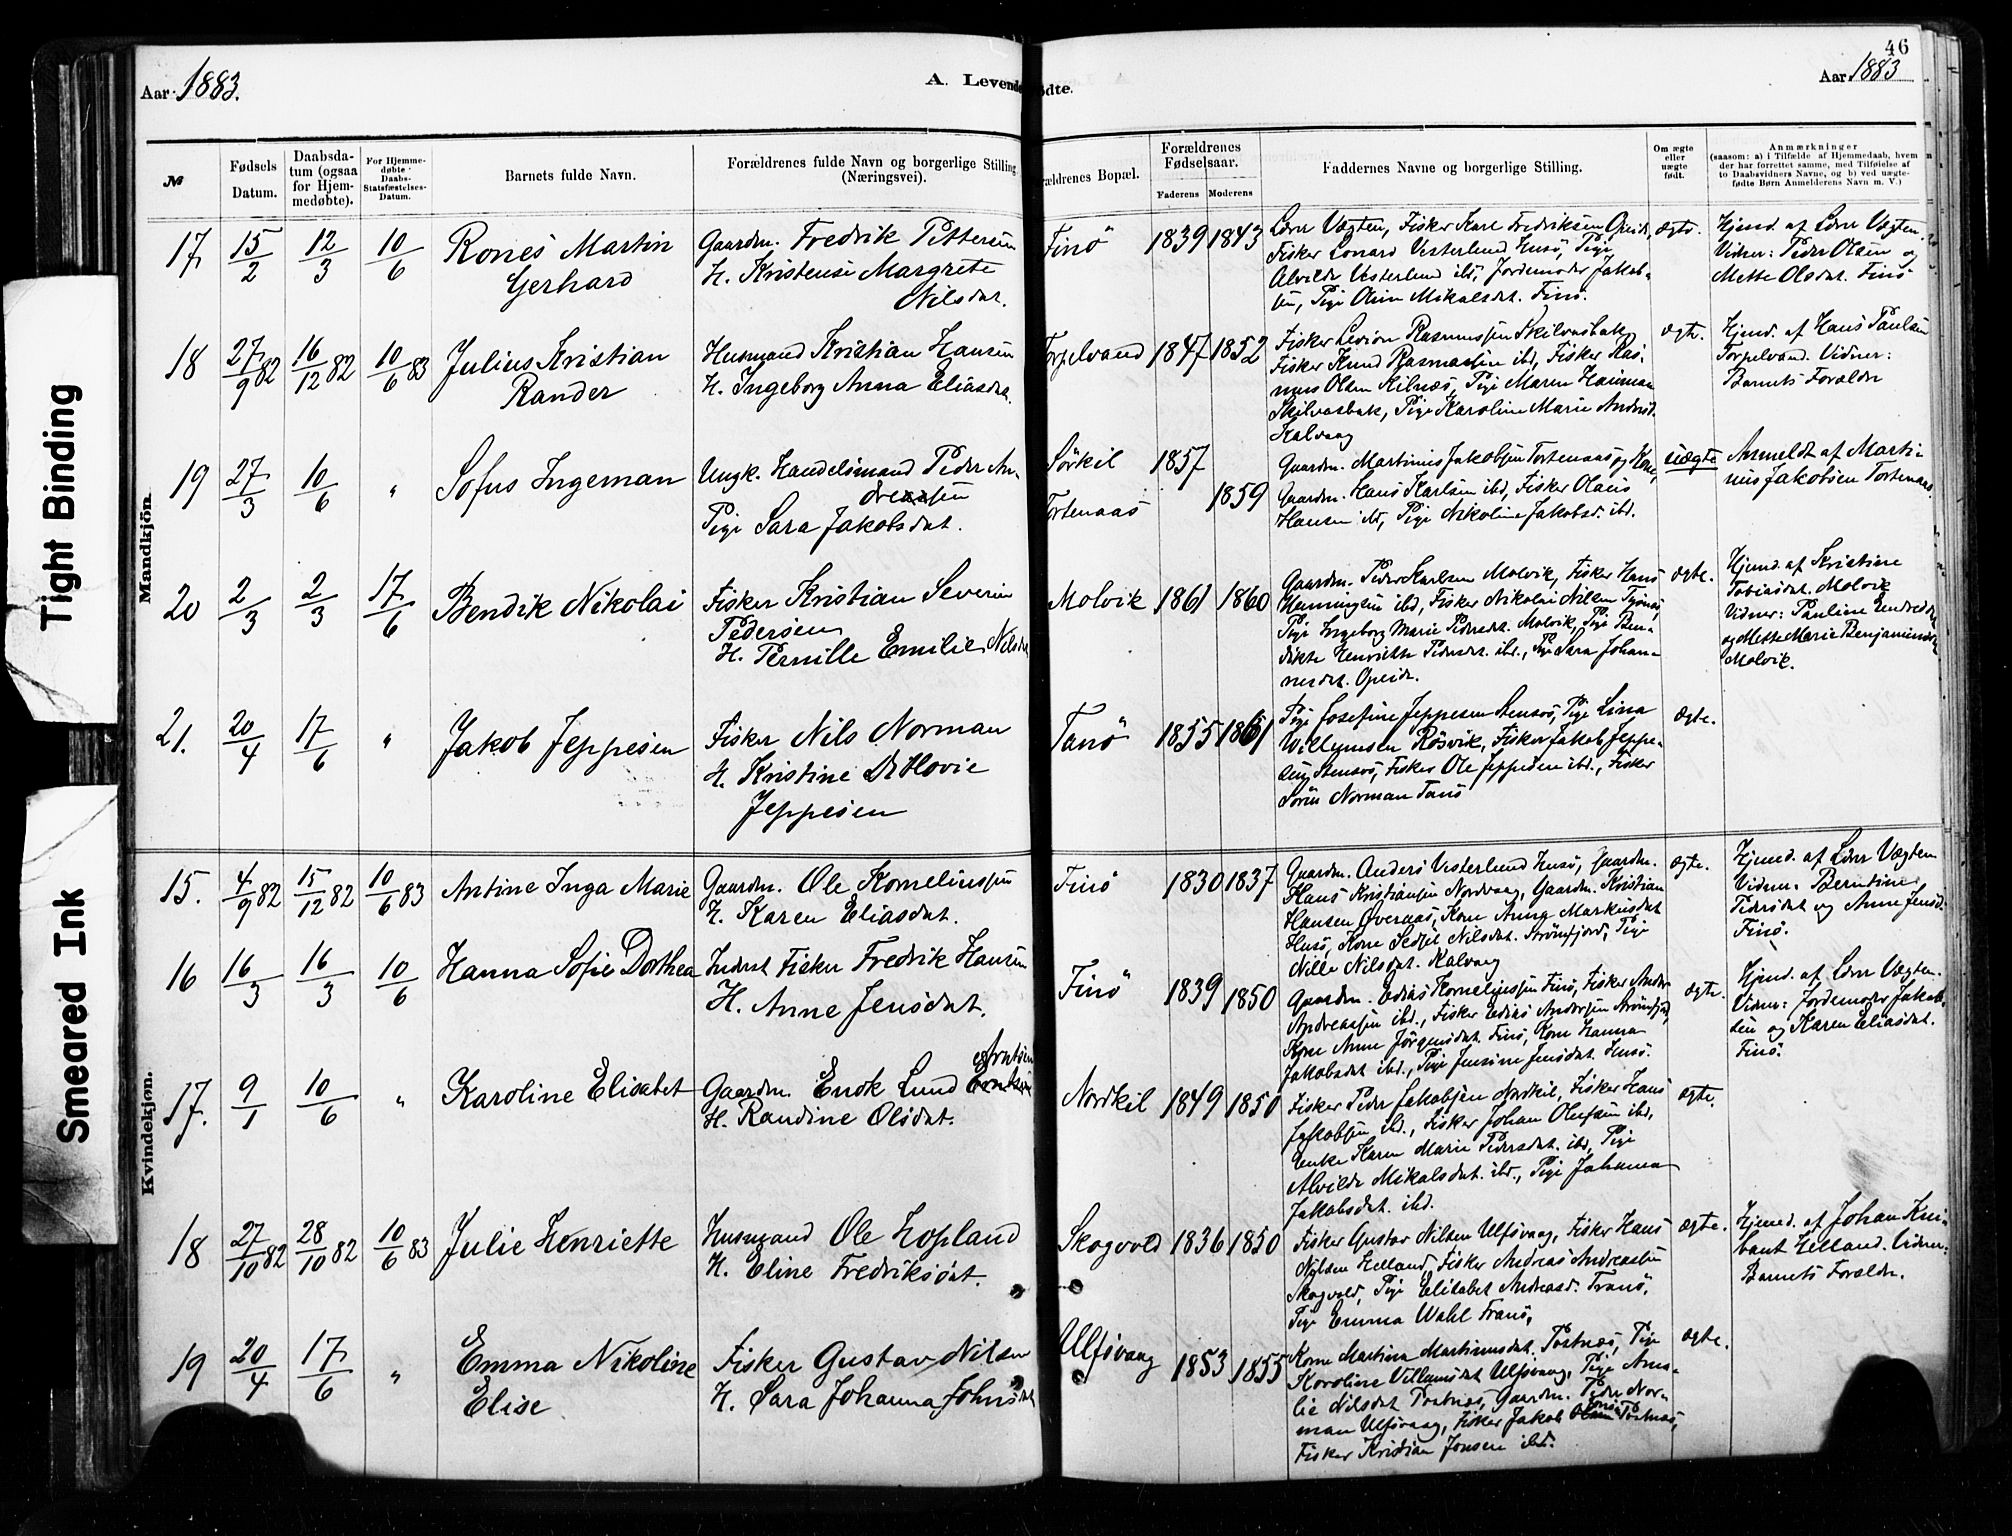 46
Aar 1883.
A. Levendefødte.
Aar 1883
Tight Binding
Smeared Ink
№
Fødsels Datum.
Daabsda-
tum (ogsaa
for Hjem-
medøbte).
For Hjemme-
døbte
Daabs-
Stadfæstelses-
Datum.
Barnets fulde Navn.
Forældrenes fulde Navn og borgerlige Stilling
(Næringsvei).
rældrenes Bopæl.
Forældrenes
Fødselsaar.
Faderens
Moderens
Faddernes Navne og borgerlige Stilling.
Om ægte
eller
uægte
født.
Anmærkninger
(saasom: a) i Tilfælde af Hjemmedaab, hvem
der har forrettet samme, med Tilføielse af
to Daabsvidners Navne, og b) ved uægte-
fødte Børn Anmelderens Navn m. V.)
Mandkjøn.
17 15/2 12/3 10/6 Rones Martin
Gerhard
Gaardm. Fredrik Pettersen
H. Kristense Margrete
Nilsdat.
Finö 1839 1843
Lærer Vægten, Fisker Karl Fredriksen
Fisker Lonard Vesterlund Husö, Pige
Alvilde Vesterlund ibd, Jordemoder Jakob-
sen, Pige Olina Mikalsdat. Finö.
ægte.
Hjemd. af Lærer Vægten.
Vidner: Peder Olsen og
Mette Olsdat. Finö
18 27/9 82 16/12 82 10/6 83 Julius Kristian
Rander
Husmand Kristian Hansen
H. Ingeborg Anna Eliasdat.
Torpelvand 1847 1852
Fisker Rasmussen Skilvasbak
Fisker Knud Rasmussen ibd, Fisker Ras-
mus Olsen Kilnæs, Pige Maren
Skilvasbak, Pige Karoline Marie
Kalvaag
ægte.
Hjemd. af Hans Paulsen
Torpelvand. Vidner:
Barnets Forældre
19 27/3 10/6 " Sofus Ingeman
Ungk. Handelsmand Peder An-
dreassen
Pige Sara Jakobsdat.
Sörkil 1857
Tortenaas 1859
Gaardm. Martinus Jakobsen Tortenaas og Kone,
Gaardm. Hans Karlsen ibd, Fisker Olaus
Hansen ibd, Pige Nikoline Jakobsd. ibd.
uægte
Anmeldt af Marti-
nus Jakobsen Tortenaas.
20 2/3 2/3 17/6 Bendik Nikolai
Fisker Kristian Severin
Pedersen
H. Pernille Emilie Nilsdat
Molvik 1861 1860
Gaardm. Peder Karlsen Molvik, Fisker Hans
Henningsen ibd, Fisker Nikolai Nilsen
Pige Ingeborg Marie Pedersdat. Molvik, Pige Ben-
dikte Henriette Pedersdat. ibd., Pige Sara Johan-
nesdat. Opeide.
ægte.
Hjemd. af Kristine
Tobiasdat. Molvik
Vidner: Pauline
og Mette Marie Benjaminsd.
Molvik.
21. 20/4 17/6 " Jakob Jeppesen
Fisker Nils Norman
H. Kristine Detlovie
Jeppesen
Tanö 1855 1861
Pige Josefine Jeppesen Stensö, Pige Lina
Willumsen Rösvik, Fisker Jakob Jeppe-
sen Stensö, Fisker Ole Jeppesen ibd., Fisker
Sören Norman Tanö
ægte.
Kvindekjøn.
15. 4/9 82 15/12 82 10/6 83 Antine Inga Marie
Gaardm. Ole Korneliussen
H. Karen Eliasdat.
Finö 1830 1837
Gaardm. Anders Vesterlund Husö, Gaardm.
Hans Kristiansen Nordvaag, Gaardm. Kristian
Hansen Overaas, Kone Anna Markusdat
Husö, Kone Nilsdat. Strömfjord, Pige
Nille Nilsdat. Kalvaag
ægte.
Hjemd. af Lærer Vægten
Vidner: Berntine
Pedersdat og Anne Jensd.
Finö.
16 16/3 16/3 10/6 Hanna Sofie Dorthea
Inderst Fisker Fredrik Hansen
H. Anne Jensdat.
Finö 1839 1850
Gaardm. Edias Korneliussen Finö, Fisker
Andreassen ibd., Fisker Edias Andersen Strömfjord,
Kone Anne Jörgensdat. Finö, Kone Hanna
Jakobsdat ibd., Pige Jensine Jensdat. Husö.
ægte.
Hjemd. af Lærer Vægten.
Vidner: Jordemoder Jakob-
sen og Karen Eliasdat.
Finö.
17. 9/1 10/6 " Karoline Elisabet
Gaardm. Enok Lund Arntsen
H. Randine Olsdat.
Nordkil 1849 1850
Fisker Peder Jakobsen Nordkil, Fisker Hans
Jakobsen ibd., Fisker Johan Olufsen ibd,
Enke Karen Marie Pedersdat. ibd, Pige
Alvilde Mikalsdat. ibd., Pige Johanna
Jakobsdat. ibd.
ægte.
18 27/10 82 28/10 82 10/6 83 Julie Henriette
Husmand Ole Hopland
H. Eline Fredriksdat.
Skogvold 1836 1850
Fisker Gustav Nilsen Ulfsvaag, Fisker Hans
Nilsen Helland, Fisker Andreas Andreassen
Skogvold, Pige Elisabet Andreasd. Tranö,
Pige Emma Wahl Tranö,
ægte.
Hjemd. af Johan
Helland. Vidner:
Barnets Forældre.
19 20/4 17/6 " Emma Nikoline
Elise
Fisker Gustav Nilsen
H. Sara Johanna Johnsdat
Ulfsvaag 1853 1855
Kone Martina Martinusdat. Postnæs, Pige
Karoline Villumsdat Ulfsvaag, Pige Ama-
lie Nilsdat Postnæs, Gaardm. Peder Nor-
man Ulfsvaag, Fisker Jakob Jonsen Postnæs,
Fisker Kristian Jonsen ibd.
ægte.